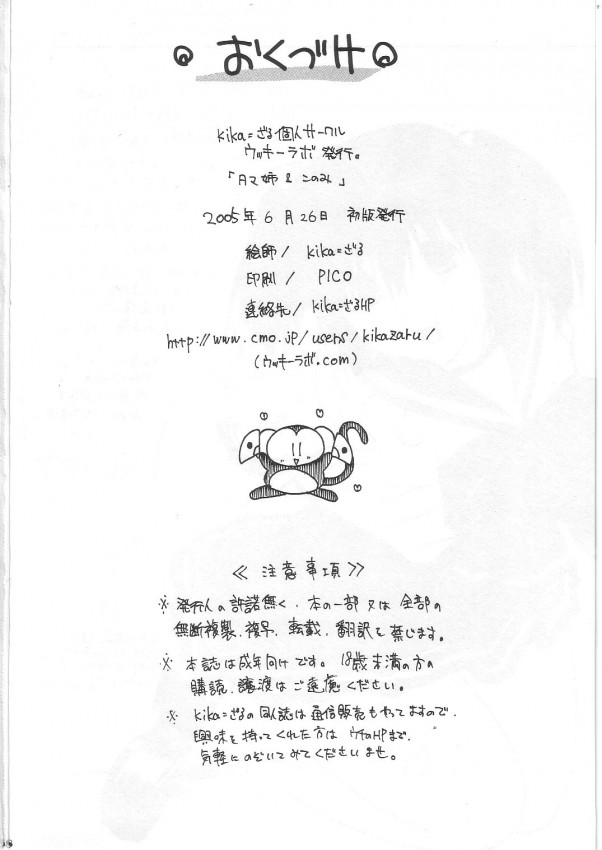 おくづけ
kika=ざる個人サークル
ウッキーラボ 発行。
「タマ姉 & このみ」
2005年 6月 26日 初版発行
絵師/ kika=ざる
印刷/ PICO
連絡先/ kika=ざるHP
http://www.cmo.jp/users/kikazaru/
(ウッキーラボ.com)
≪ 注意事項 ≫
※ 発行人の許諾無く、本の一部又は全部の
無断複製、複写、転載、翻訳を禁じます。
※ 本誌は成年向けです。18歳未満の方の
購読、譲渡はご遠慮ください。
※ kika=ざるの同人誌は通信販売もやってますので、
興味を持ってくれた方はウチのHPまで、
気軽にのぞいてみてくださいませ。